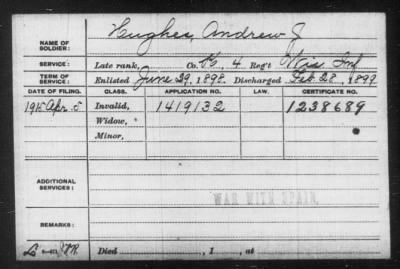 NAME OF SOLDIER: Hughes, Andrew J
SERVICE: Late rank, Co. K, 4 Reg't Wis Inf
TERM OF SERVICE: Enlisted June 29, 1898. Discharged Feb. 28, 1899
DATE OF FILING. CLASS. APPLICATION NO. LAW. CERTIFICATE NO.
1915 Apr. 5 Invalid, 1419132 1238689
Widow,
Minor,
ADDITIONAL SERVICES:
WAR WITH SPAIN.
REMARKS:
Died , 1 , at